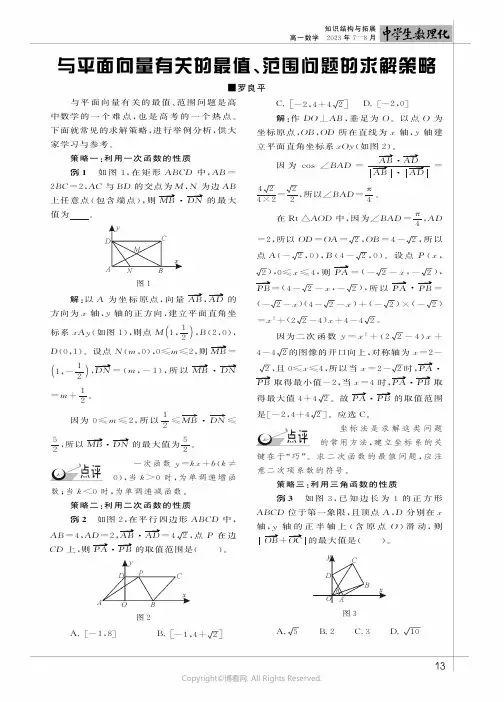 知识结构与拓展
高一数学 2023 年 7—8 月
中学生数理化
与平面向量有关的最值、范围问题的求解策略
■罗良平
与平面向量有关的最值、范围问题是高
中数学的一个难点,也是高考的一个热点。
下面就常见的求解策略,进行举例分析,供大
家学习与参考。
策略一:利用一次函数的性质
例 1 如图 1,在矩形 ABCD 中,AB=
2BC=2,AC 与 BD 的交点为 M,N 为边 AB
上任意点(包含端点),则 \overrightarrow{MB}·\overrightarrow{DN} 的最大
值为____。
y
D C
M
A N B x
图 1
解:以 A 为坐标原点,向量 \overrightarrow{AB},\overrightarrow{AD} 的
方向为 x 轴,y 轴的正方向,建立平面直角坐
标系 xAy(如图 1),则点 M(1, 1/2),B(2,0),
D(0,1)。设点 N(m,0),0≤m≤2,则 \overrightarrow{MB}=
(1,-1/2),\overrightarrow{DN}=(m,-1),所以 \overrightarrow{MB}·\overrightarrow{DN}
=m+1/2。
因为 0≤m≤2,所以 1/2≤\overrightarrow{MB}·\overrightarrow{DN}≤
5/2,所以 \overrightarrow{MB}·\overrightarrow{DN} 的最大值为 5/2。
点评
一次函数 y=kx+b(k≠
0),当 k>0 时,为单调递增函
数;当 k<0 时,为单调递减函数。
策略二:利用二次函数的性质
例 2 如图 2,在平行四边形 ABCD 中,
AB=4,AD=2,\overrightarrow{AB}·\overrightarrow{AD}=4√2,点 P 在边
CD 上,则 \overrightarrow{PA}·\overrightarrow{PB} 的取值范围是( )。
y
D P C
A O B x
图 2
A. [-1,8] B. [-1,4+√2]
C. [-2,4+4√2] D. [-2,0]
解:作 DO⊥AB,垂足为 O。以点 O 为
坐标原点,OB,OD 所在直线为 x 轴,y 轴建
立平面直角坐标系 xOy(如图 2)。
因为 cos ∠BAD = \overrightarrow{AB}·\overrightarrow{AD}/(|\overrightarrow{AB}|·|\overrightarrow{AD}|) =
4√2/(4×2)=√2/2,所以∠BAD=π/4。
在 Rt△AOD 中,因为∠BAD=π/4,AD
=2,所以 OD=OA=√2,OB=4-√2,所以
点 A(-√2,0),B(4-√2,0)。设点 P(x,
√2),0≤x≤4,则 \overrightarrow{PA}=(-√2-x,-√2),
\overrightarrow{PB}=(4-√2-x,-√2),所以 \overrightarrow{PA}·\overrightarrow{PB}=
(-√2-x)(4-√2-x)+(-√2)×(-√2)
=x²+(2√2-4)x+4-4√2。
因为二次函数 y=x²+(2√2-4)x+
4-4√2的图像的开口向上,对称轴为 x=2-
√2,且 0≤x≤4,所以当 x=2-√2时,\overrightarrow{PA}·
\overrightarrow{PB} 取得最小值-2,当 x=4 时,\overrightarrow{PA}·\overrightarrow{PB} 取
得最大值 4+4√2。故 \overrightarrow{PA}·\overrightarrow{PB} 的取值范围
是[-2,4+4√2]。应选 C。
点评
坐标法是求解这类问题
的常用方法,建立坐标系的关
键在于“巧”。求二次函数的最值问题,应注
意二次项系数的符号。
策略三:利用三角函数的性质
例 3 如图 3,已知边长为 1 的正方形
ABCD 位于第一象限,且顶点 A,D 分别在 x
轴,y 轴的正半轴上(含原点 O)滑动,则
|\overrightarrow{OB}+\overrightarrow{OC}|的最大值是( )。
y
C
D
B
O A x
图 3
A. √5 B. 2 C. 3 D. √10
13
Copyright©博看网. All Rights Reserved.